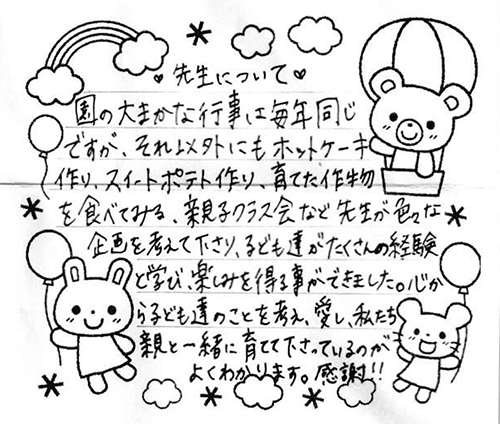 ♥先生について♥
園の大まかな行事は毎年同じ
ですが、それ以外にもホットケーキ
作り、スイートポテト作り、育てた作物
を食べてみる、親子クラス会など先生が色々な
企画を考えて下さり、子ども達がたくさんの経験
と学び、楽しみを得る事ができました。心か
ら子ども達のことを考え、愛し、私たち
親と一緒に育てて下さっているのが
よくわかります。感謝!!